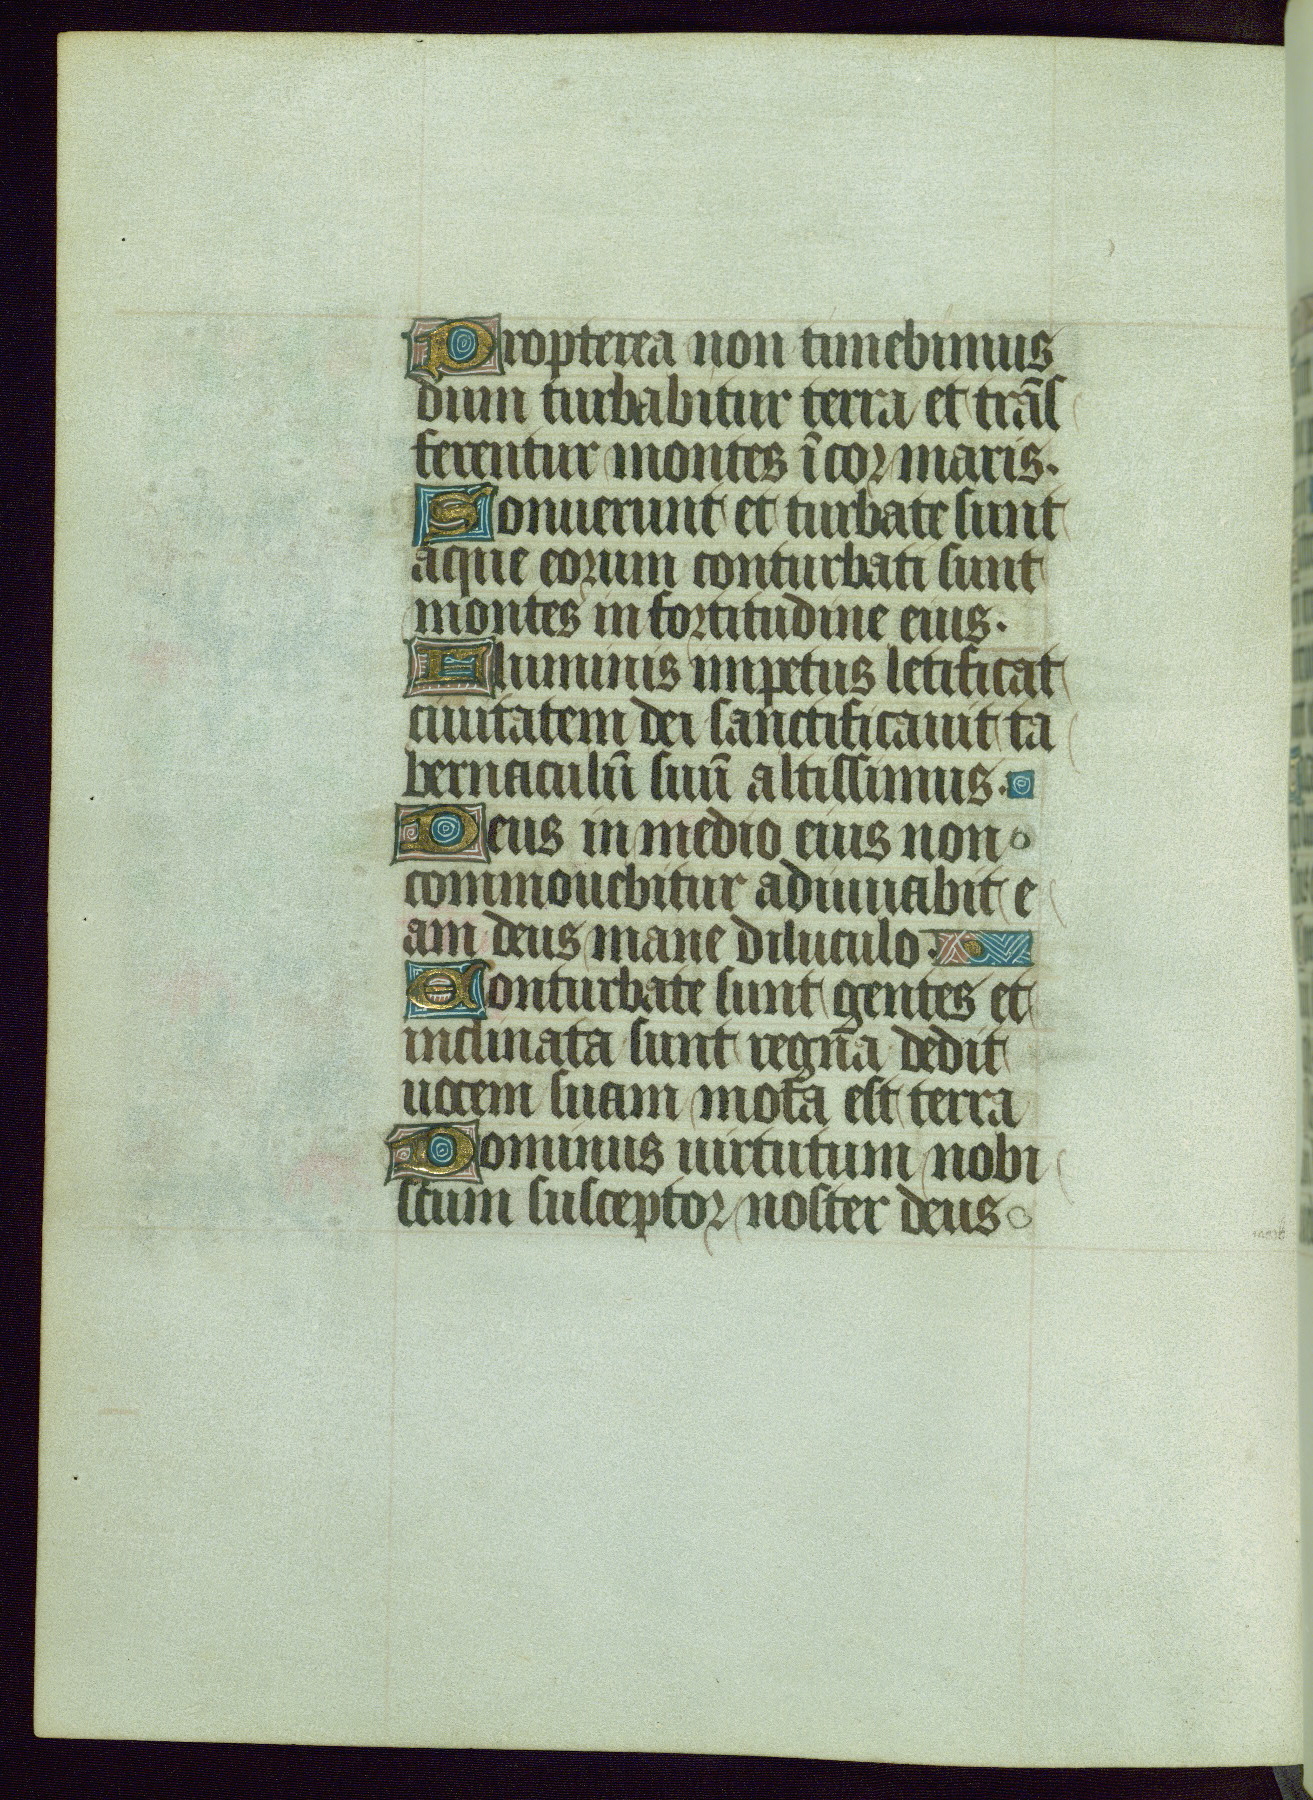 Propterea non timebimus
dum turbabitur terra et trāſ
ferentur montes ī cor maris.
Sonuerunt et turbate sunt
aque eorum conturbati sunt
montes in fortitudine eius.
Fluminis impetus letificat
ciuitatem dei sanctificauit ta
bernaculū suū altissimus.
Deus in medio eius non
commouebitur adiuuabit e
am deus mane diluculo.
Conturbate sunt gentes et
inclinata sunt regna dedit
uocem suam mota est terra
Dominus uirtutum nobi
scum susceptor noster deus